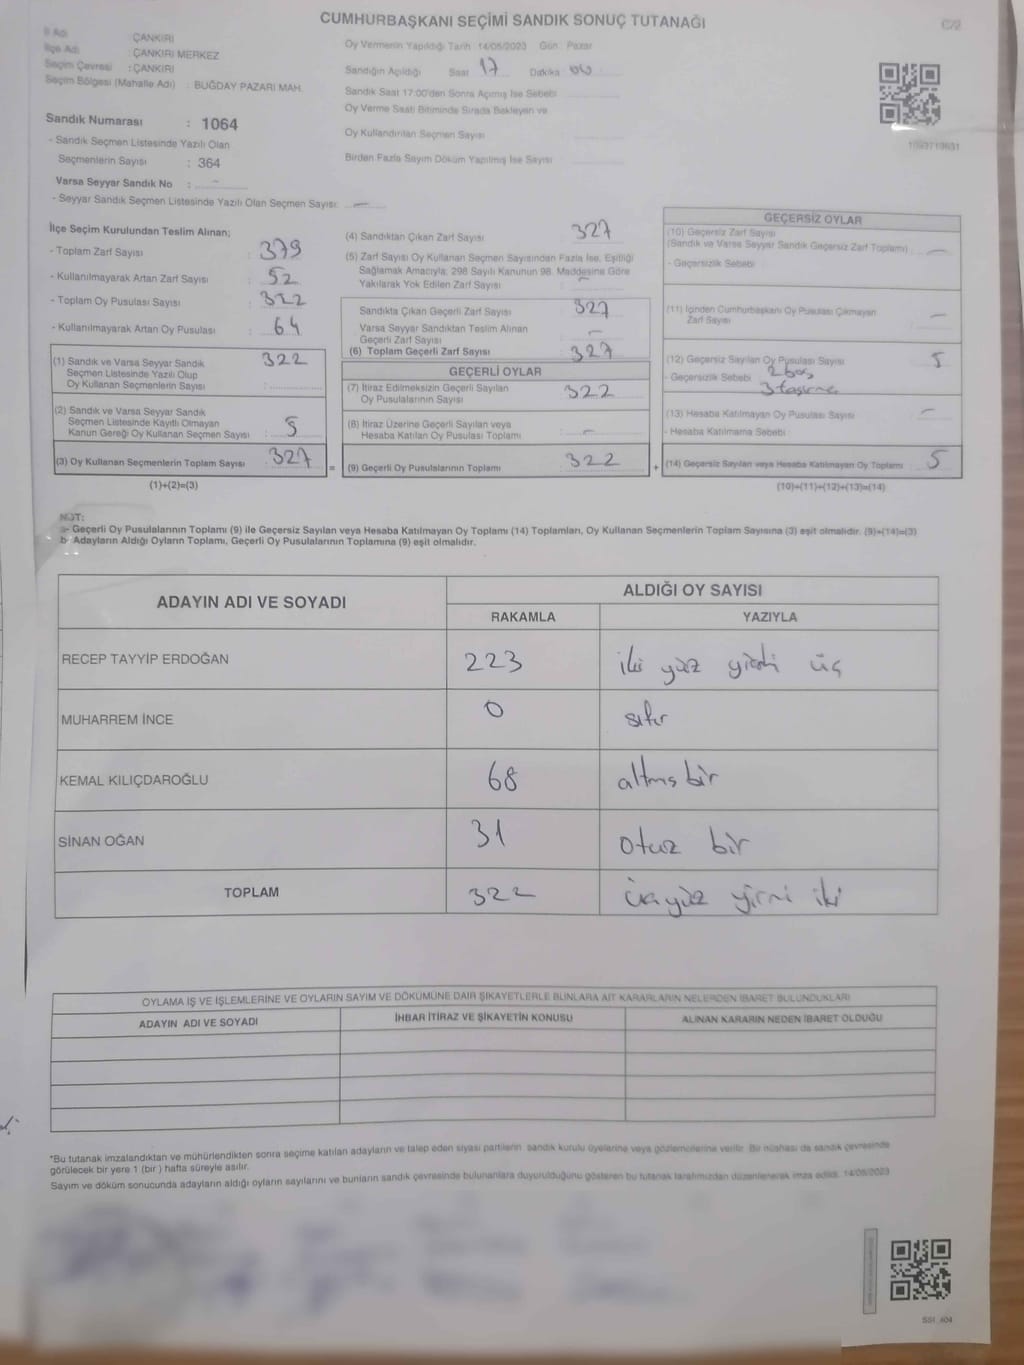 CUMHURBAŞKANI SEÇİMİ SANDIK SONUÇ TUTANAĞI
C/2
İl Adı : ÇANKIRI
İlçe Adı : ÇANKIRI MERKEZ
Seçim Çevresi : ÇANKIRI
Seçim Bölgesi (Mahalle Adı) : BUĞDAY PAZARI MAH.
Sandık Numarası : 1064
- Sandık Seçmen Listesinde Yazılı Olan
Seçmenlerin Sayısı : 364
Varsa Seyyar Sandık No : -
- Seyyar Sandık Seçmen Listesinde Yazılı Olan Seçmen Sayısı: -
Oy Vermenin Yapıldığı Tarih : 14/05/2023 Gün : Pazar
Sandığın Açıldığı Saat 17 Dakika 00
Sandık Saat 17:00'den Sonra Açılmış İse Sebebi
Oy Verme Saati Bitiminde Sırada Bekleyen ve
Oy Kullandırılan Seçmen Sayısı
Birden Fazla Sayım Döküm Yapılmış İse Sayısı
İlçe Seçim Kurulundan Teslim Alınan;
- Toplam Zarf Sayısı : 379
- Kullanılmayarak Artan Zarf Sayısı : 52
- Toplam Oy Pusulası Sayısı :
- Kullanılmayarak Artan Oy Pusulası : 64
(1) Sandık ve Varsa Seyyar Sandık 322
Seçmen Listesinde Yazılı Olup
Oy Kullanan Seçmenlerin Sayısı :
(2) Sandık ve Varsa Seyyar Sandık
Seçmen Listesinde Kayıtlı Olmayan
Kanun Gereği Oy Kullanan Seçmen Sayısı : 5
(3) Oy Kullanan Seçmenlerin Toplam Sayısı : 327
(1)+(2)=(3)
(4) Sandıktan Çıkan Zarf Sayısı 327
(5) Zarf Sayısı Oy Kullanan Seçmen Sayısından Fazla İse, Eşitliği
Sağlamak Amacıyla; 298 Sayılı Kanunun 98. Maddesine Göre
Yakılarak Yok Edilen Zarf Sayısı : -
Sandıkta Çıkan Geçerli Zarf Sayısı 327
Varsa Seyyar Sandıktan Teslim Alınan
Geçerli Zarf Sayısı -
(6) Toplam Geçerli Zarf Sayısı 327
GEÇERLİ OYLAR
(7) İtiraz Edilmeksizin Geçerli Sayılan
Oy Pusulalarının Sayısı 322
(8) İtiraz Üzerine Geçerli Sayılan veya
Hesaba Katılan Oy Pusulası Toplamı : -
= (9) Geçerli Oy Pusulalarının Toplamı : 322
GEÇERSİZ OYLAR
(10) Geçersiz Zarf Sayısı
(Sandık ve Varsa Seyyar Sandık Geçersiz Zarf Toplamı) : -
- Geçersizlik Sebebi :
(11) İçinden Cumhurbaşkanı Oy Pusulası Çıkmayan
Zarf Sayısı -
(12) Geçersiz Sayılan Oy Pusulası Sayısı 5
- Geçersizlik Sebebi : 2 boş
3 taşırma
(13) Hesaba Katılmayan Oy Pusulası Sayısı -
- Hesaba Katılmama Sebebi :
+ (14) Geçersiz Sayılan veya Hesaba Katılmayan Oy Toplamı : 5
(10)+(11)+(12)+(13)=(14)
NOT:
a- Geçerli Oy Pusulalarının Toplamı (9) ile Geçersiz Sayılan veya Hesaba Katılmayan Oy Toplamı (14) Toplamları, Oy Kullanan Seçmenlerin Toplam Sayısına (3) eşit olmalıdır. (9)+(14)=(3)
b- Adayların Aldığı Oyların Toplamı, Geçerli Oy Pusulalarının Toplamına (9) eşit olmalıdır.
ADAYIN ADI VE SOYADI
ALDIĞI OY SAYISI
RAKAMLA YAZIYLA
RECEP TAYYİP ERDOĞAN 223 iki yüz yirmi üç
MUHARREM İNCE 0 sıfır
KEMAL KILIÇDAROĞLU 68 altmış bir
SİNAN OĞAN 31 otuz bir
TOPLAM 322 üçyüz yirmi iki
OYLAMA İŞ VE İŞLEMLERİNE VE OYLARIN SAYIM VE DÖKÜMÜNE DAİR ŞİKAYETLERLE BUNLARA AİT KARARLARIN NELERDEN İBARET BULUNDUKLARI
ADAYIN ADI VE SOYADI İHBAR İTİRAZ VE ŞİKAYETİN KONUSU ALINAN KARARIN NEDEN İBARET OLDUĞU
*Bu tutanak imzalandıktan ve mühürlendikten sonra seçime katılan adayların ve talep eden siyasi partilerin sandık kurulu üyelerine veya gözlemcilerine verilir. Bir nüshası da sandık çevresinde
görülecek bir yere 1 (bir) hafta süreyle asılır.
Sayım ve döküm sonucunda adayların aldığı oyların sayılarını ve bunların sandık çevresinde bulunanlara duyurulduğunu gösteren bu tutanak tarafımızdan düzenlenerek imza edildi. 14/05/2023